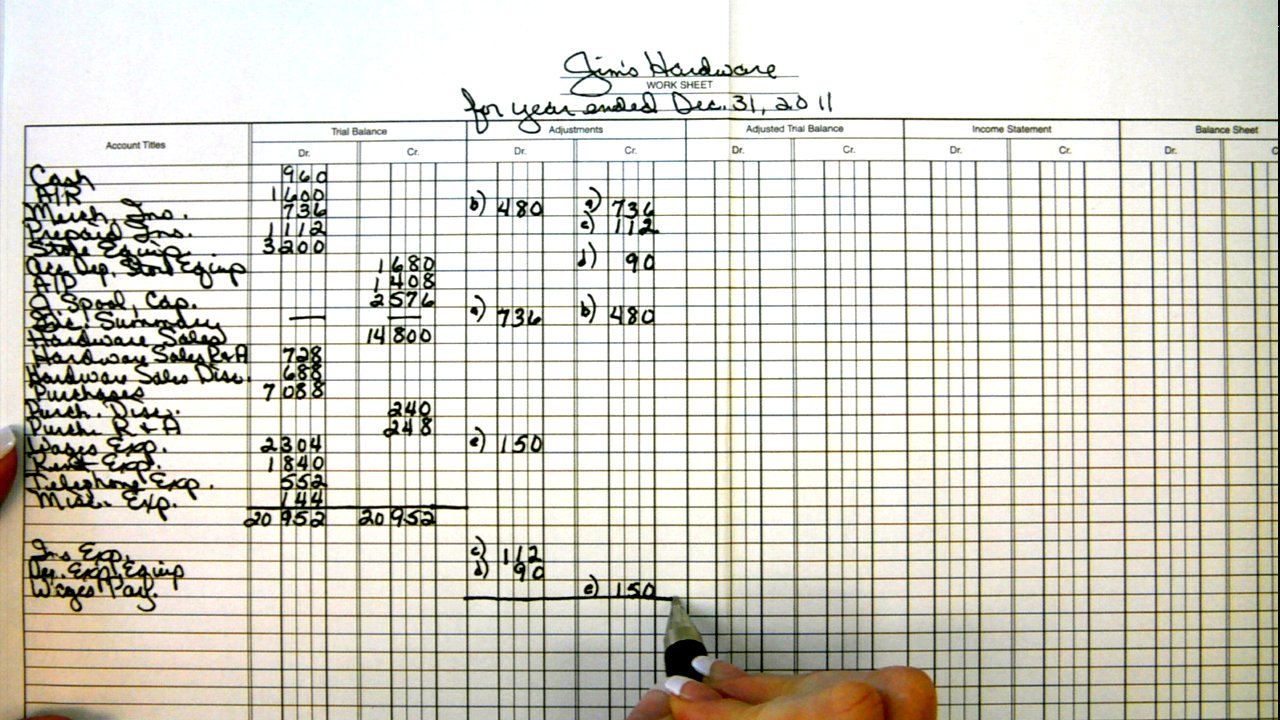 Jim's Hardware
WORK SHEET
for year ended Dec. 31, 2011
Account Titles Trial Balance Adjustments Adjusted Trial Balance Income Statement Balance Sheet
Dr. Cr. Dr. Cr. Dr. Cr. Dr. Cr. Dr. C
Cash 960
A/R 1600
Merch. Ins. 736 b) 480 a) 736
Prepaid Ins. 1112 c) 112
Store Equip. 3200
Acc. Dep. Store Equip 1680 d) 90
A/P 1408
J. Spool, Cap. 2576
Inc. Summary — — a) 736 b) 480
Hardware Sales 14800
Hardware Sales R+A 728
Hardware Sales Disc. 688
Purchases 7088
Purch. Disc. 240
Purch. R + A 248
Wages Exp. 2304 e) 150
Rent Exp. 1840
Telephone Exp. 552
Misc. Exp. 144
20952 20952
Ins Exp. c) 112
Dep. Exp. Equip d) 90
Wages Pay. e) 150